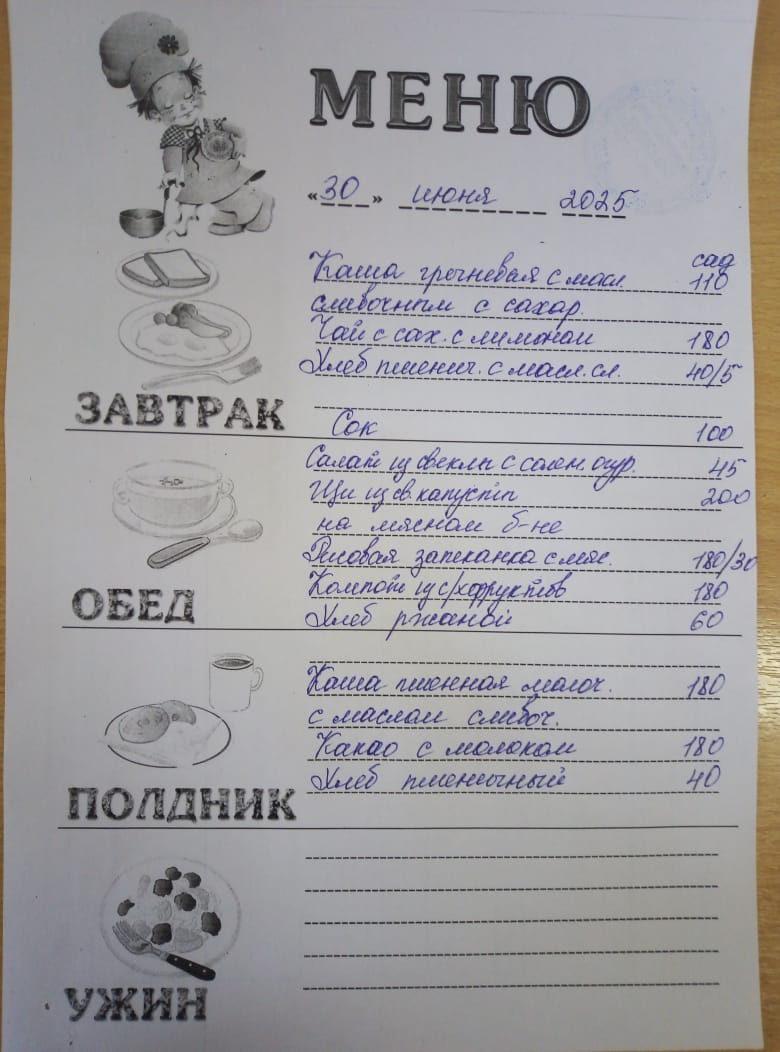 МЕНЮ
«30» июня 2025
сад
Каша гречневая с масл. 110
сливочным с сахар.
Чай с сах. с лимоном 180
Хлеб пшенич. с масл. сл. 40/5
ЗАВТРАК
Сок 100
Салат из свеклы с солен. огур. 45
Щи из св. капусты 200
на мясном б-не
Рисовая запеканка с мяс. 180/30
Компот из с/хфруктов 180
ОБЕД
Хлеб ржаной 60
Каша пшенная молоч. 180
с маслом сливоч.
Какао с молоком 180
Хлеб пшеничный 40
ПОЛДНИК
УЖИН